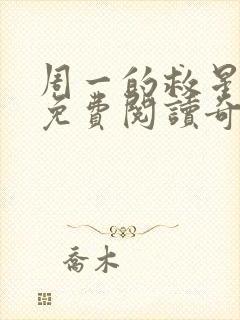 周一的救星
免費閱讀奇
喬木